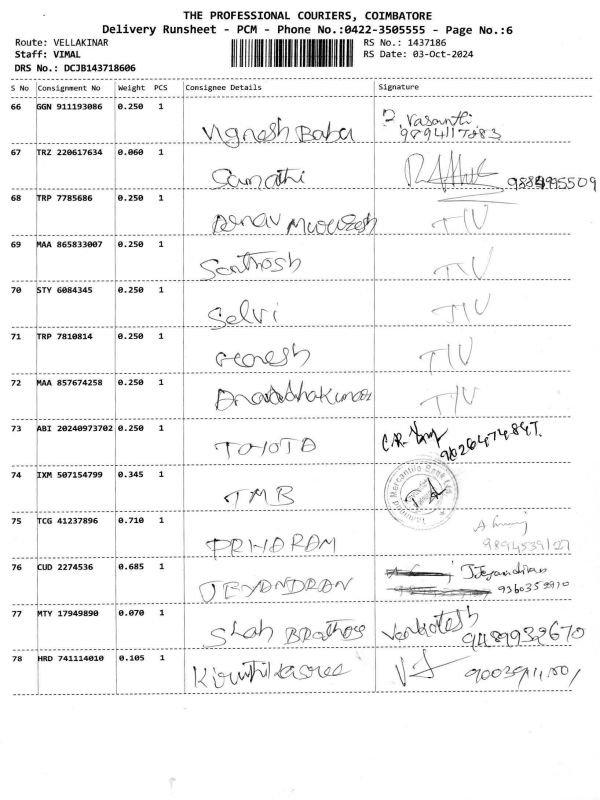 THE PROFESSIONAL COURIERS, COIMBATORE
Delivery Runsheet - PCM - Phone No.:0422-3505555 - Page No.:6
Route: VELLAKINAR RS No.: 1437186
Staff: VIMAL RS Date: 03-Oct-2024
DRS No.: DCJB143718606
S No Consignment No Weight PCS Consignee Details Signature
66 GGN 911193086 0.250 1
Vignesh Babu Vasanthi
9894117283
67 TRZ 220617634 0.060 1
68 TRP 7785686 0.250 1
T/U
69 MAA 865833007 0.250 1
Santhosh T/U
70 STY 6084345 0.250 1
Selvi T/U
71 TRP 7810814 0.250 1
T/U
72 MAA 857674258 0.250 1
T/U
73 ABI 20240973702 0.250 1
TOYOTA
74 IXM 507154799 0.345 1
TMB Tamilnad Mercantile Bank Ltd.
75 TCG 41237896 0.710 1
9894539127
76 CUD 2274536 0.685 1
JEYANDRAN
77 MTY 17949890 0.070 1
Shah Venkatesh
9489932670
78 HRD 741114010 0.105 1